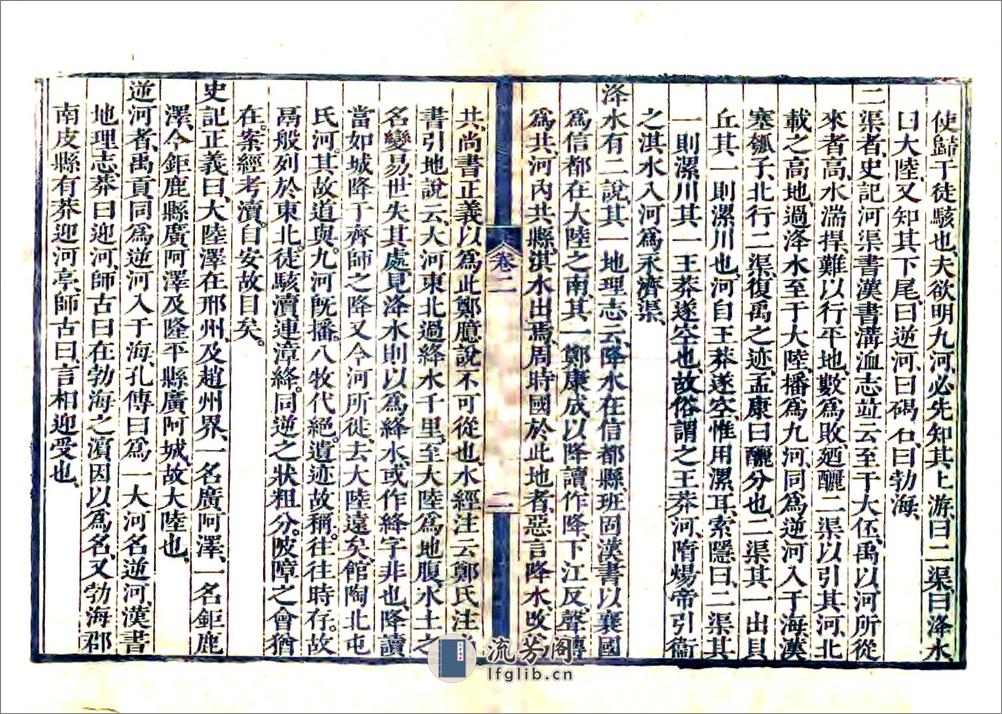 使歸于徒駭也、夫欲明九河、必先知其上游、曰二渠、曰洚水、
曰大陸、又知其下尾、曰逆河、曰碣石、曰勃海、
二渠者、史記河渠書漢書溝洫志竝云、至于大伾、禹以河所從
來者高、水湍悍、難以行平地、數爲敗、廼釃二渠以引其河、北
載之高地、過洚水、至于大陸、播爲九河、同爲逆河、入于海、漢
塞瓠子、北行二渠、復禹之迹、孟康曰、釃分也、二渠其一出貝
丘、其一則漯川也、河自王莽遂空、惟用漯耳、索隱曰、二渠其
一則漯川、其一王莽遂空也、故俗謂之王莽河、隋煬帝引衞
之淇水入河爲永濟渠、
洚水有二說、其一地理志云、降水在信都縣、班固漢書以襄國
爲信都、在大陸之南、其一鄭康成以降讀作降、下江反、聲轉
爲共、河內共縣淇水出焉、周時國於此地者、惡言降水、改
共、尚書正義以爲此鄭臆說、不可從也、水經注云、鄭氏注
書引地說云、大河東北過絳水千里、至大陸爲地腹、水土之
名變易、世失其處、見洚水則以爲絳水、或作絳字、非也、降讀
當如郕降于齊師之降、又今河所徙、去大陸遠矣、館陶北屯
氏河、其故道與、九河旣播、八枝代絕、遺迹故稱、往往時存、故
鬲般列於東北、徒駭瀆連漳絳、同逆之狀粗分、陂障之會猶
在、案經考瀆、自安故目矣。
史記正義曰、大陸澤在邢州、及趙州界、一名廣阿澤、一名鉅鹿
澤、今鉅鹿縣廣阿澤及隆平縣廣阿城、故大陸也、
逆河者、禹貢同爲逆河入于海、孔傳曰、爲一大河、名逆河、漢書
地理志、莽曰迎河、師古曰、在勃海之濱、因以爲名、又勃海郡
南皮縣有莽迎河亭、師古曰、言相迎受也、
卷二
二
流芳閣
lfglib.cn